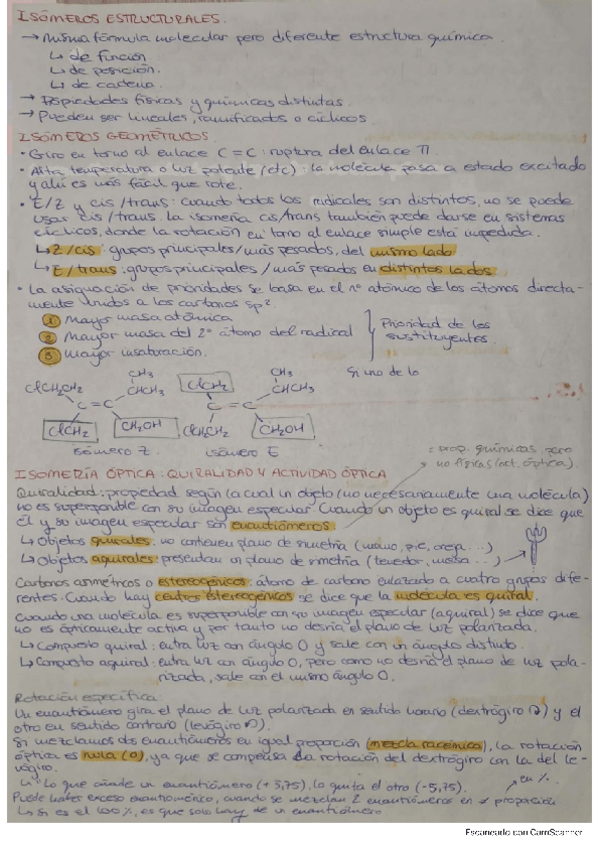 ISÓMEROS ESTRUCTURALES.
→ Misma fórmula molecular pero diferente estructura química.
↳ de función
↳ de posición.
↳ de cadena.
→ Propiedades físicas y químicas distintas.
→ Pueden ser lineales, ramificados o cíclicos.
ISÓMEROS GEOMÉTRICOS.
• Giro en torno al enlace C=C: ruptura del enlace π.
• Alta temperatura o luz potente (etc): la molécula pasa a estado excitado
y ahí es más fácil que rote.
• E/Z y cis/trans: cuando todos los radicales son distintos, no se puede
usar cis/trans. la isomería cis/trans también puede darse en sistemas
cíclicos, donde la rotación en torno al enlace simple está impedida.
↳ Z/cis: grupos principales/más pesados, del mismo lado
↳ E/trans: grupos principales/más pesados en distintos lados
• La asignación de prioridades se basa en el nº atómico de los átomos directa-
mente unidos a los carbonos sp².
① Mayor masa atómica
② Mayor masa del 2º átomo del radical
③ Mayor insaturación.
Prioridad de los
sustituyentes.
Si uno de lo
ClCH₂CH₂ CH₃ CHCH₃ C=C ClCH₂ CH₂OH
ClCH₂ CH₃ CHCH₃ C=C ClCH₂CH₂ CH₂OH
isómero Z. isómero E
= prop. químicas, pero
no físicas (act. óptica).
ISOMERÍA ÓPTICA: QUIRALIDAD Y ACTIVIDAD ÓPTICA
Quiralidad: propiedad según la cual un objeto (no necesariamente una molécula)
no es superponible con su imagen especular. Cuando un objeto es quiral se dice que
él y su imagen especular son enantiómeros.
↳ Objetos quirales: no contienen plano de simetría (mano, pie, oreja...)
↳ Objetos aquirales: presentan un plano de simetría (tenedor, mesa...)
Carbonos asimétricos o estereogénicos: átomo de carbono enlazado a cuatro grupos dife-
rentes. Cuando hay centros estereogénicos se dice que la molécula es quiral.
Cuando una molécula es superponible con su imagen especular (aquiral) se dice que
no es ópticamente activa y por tanto no desvía el plano de luz polarizada.
↳ Compuesto quiral: entra luz con ángulo 0 y sale con un ángulo distinto.
↳ Compuesto aquiral: entra luz con ángulo 0, pero como no desvía el plano de luz pola-
rizada, sale con el mismo ángulo 0.
Rotación específica:
Un enantiómero gira el plano de luz polarizada en sentido horario (dextrógiro ↷) y el
otro en sentido contrario (levógiro ↶).
Si mezclamos dos enantiómeros en igual proporción (mezcla racémica), la rotación
óptica es nula (0), ya que se compensa la rotación del dextrógiro con la del le-
vógiro.
↳ Lo que añade un enantiómero (+3,75), lo quita el otro (-5,75).
en %.
Puede haber exceso enantiomérico, cuando se mezclan 2 enantiómeros en ≠ proporción
↳ Si es el 100%, es que solo hay de un enantiómero
Escaneado con CamScanner